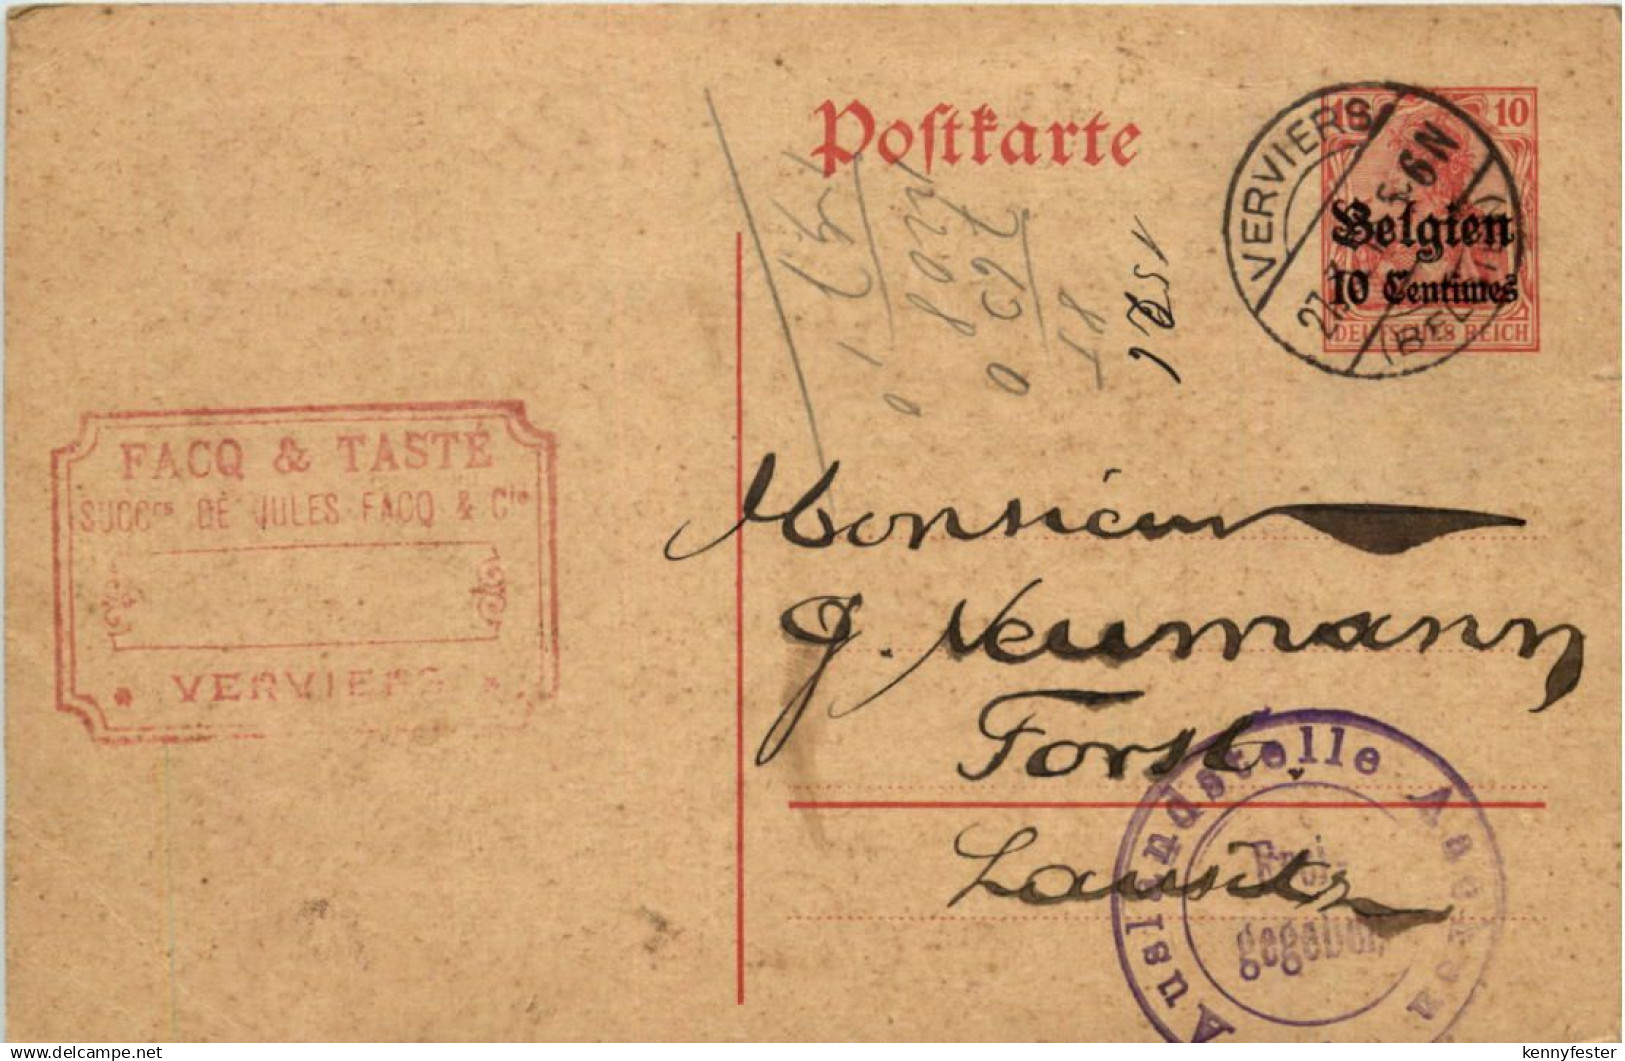 Postkarte
10 10
Belgien
10 Centimes
DEUTSCHES REICH
VERVIERS
6N
FACQ & TASTÉ
SUCCrs DE JULES FACQ & Cie
VERVIERS
Monsieur
J. Neumann
Forst
Lausitz
Auslandstelle Aachen
Frei-
gegeben
delcampe.net
kennyfester